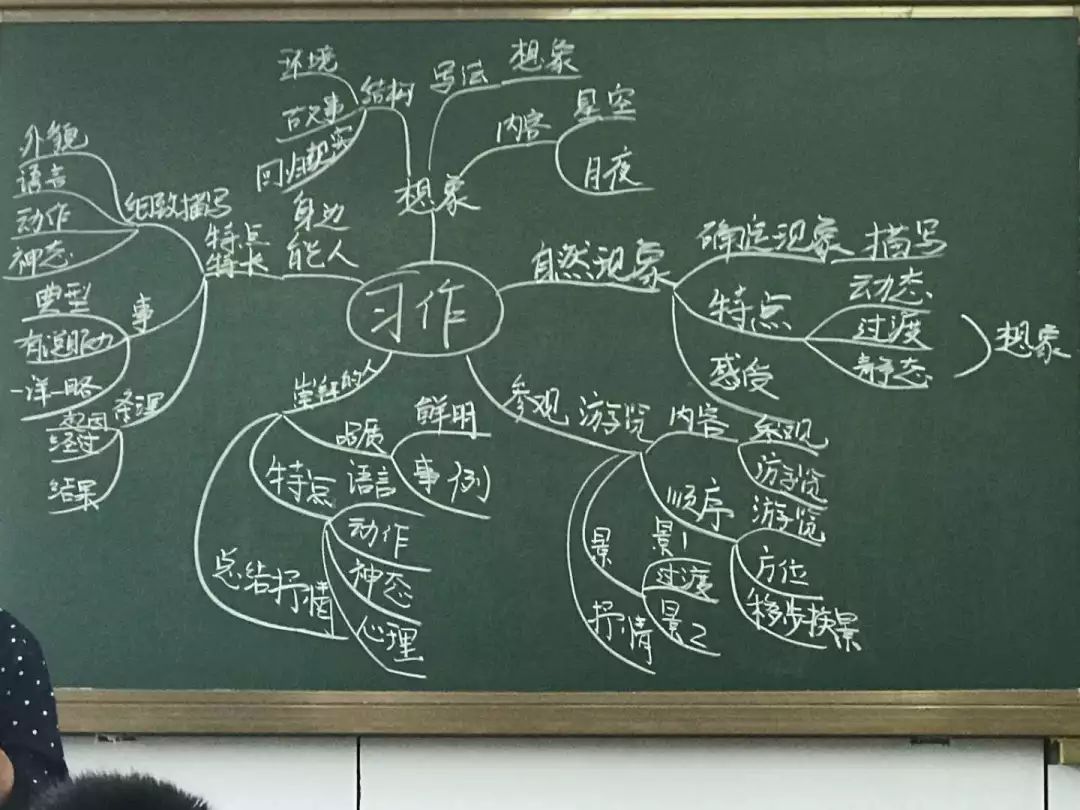 习作
想象
结构
环境
故事
回归现实
写法
想象
内容
星空
月夜
自然现象
确定现象
描写
特点
动态
过渡
静态
想象
感受
参观 游览
内容
参观
游览
顺序
游览
方位
移步换景
景
景1
过渡
景2
抒情
崇敬的人
品质
鲜明
事例
特点
语言
动作
神态
心理
总结抒情
身边
能人
特点
特长
细致描写
外貌
语言
动作
神态
事
典型
有说服力
一详一略
条理
起因
经过
结果